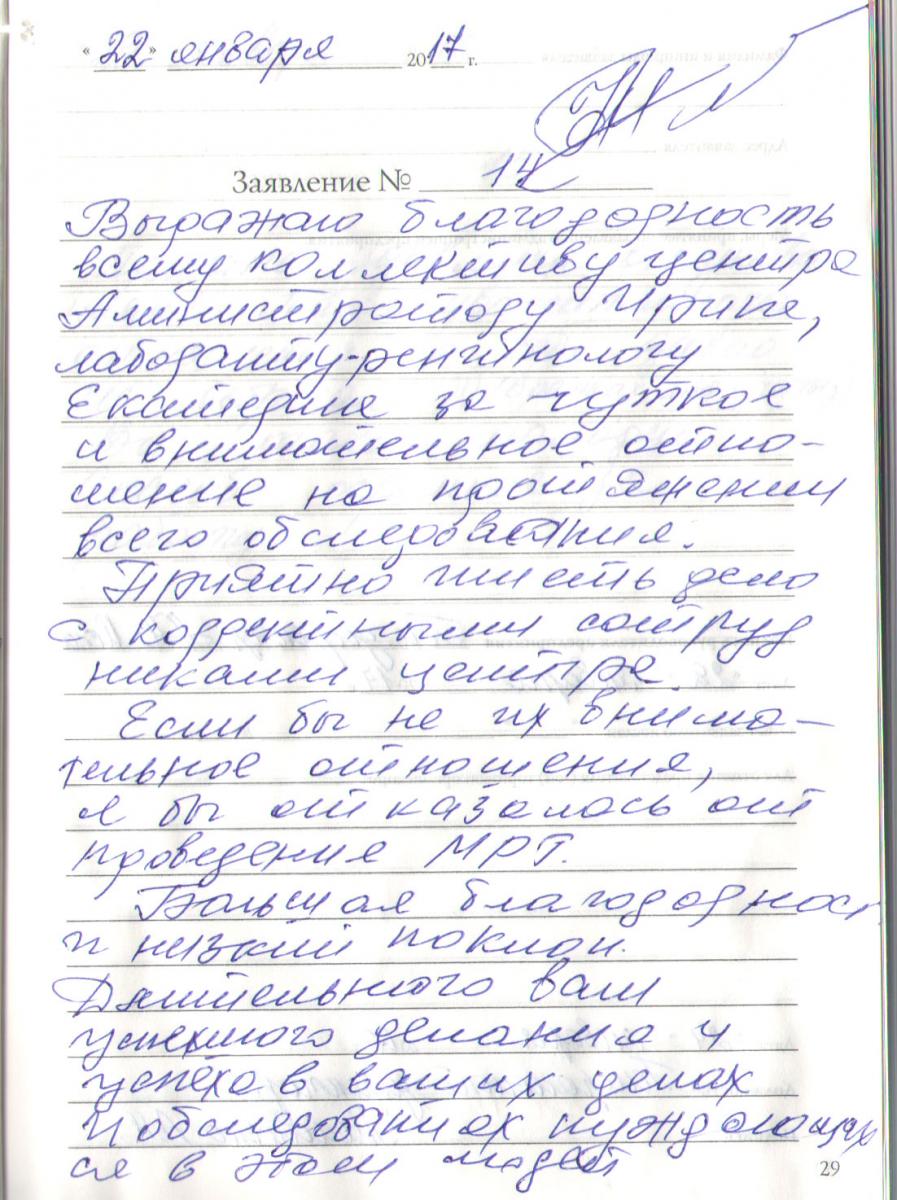 "22" января 2017 г.
Заявление № 14
Выражаю благодарность
всему коллективу центра
Аминистратору Ирине,
лаборанту-ренгинологу
Екатерине за чуткое
и внимательное отно-
шение на протяжении
всего обследования.
Приятно иметь дело
с корректными сотруд
никами центра.
Если бы не их внима-
тельное отношения,
я бы отказалась от
проведения МРТ.
Большая благодарност
и низкий поклон.
Длительного вам
успешного делания и
успеха в ваших делах
и обследованиях нуждающих
ся в этом людей
29